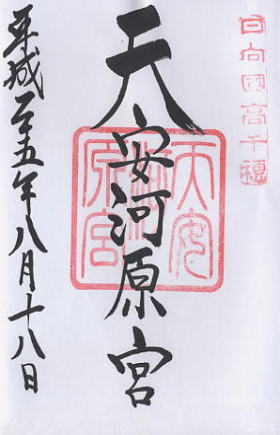 日向國高千穗
天安河原宮
天安河原宮
平成二十五年八月十八日